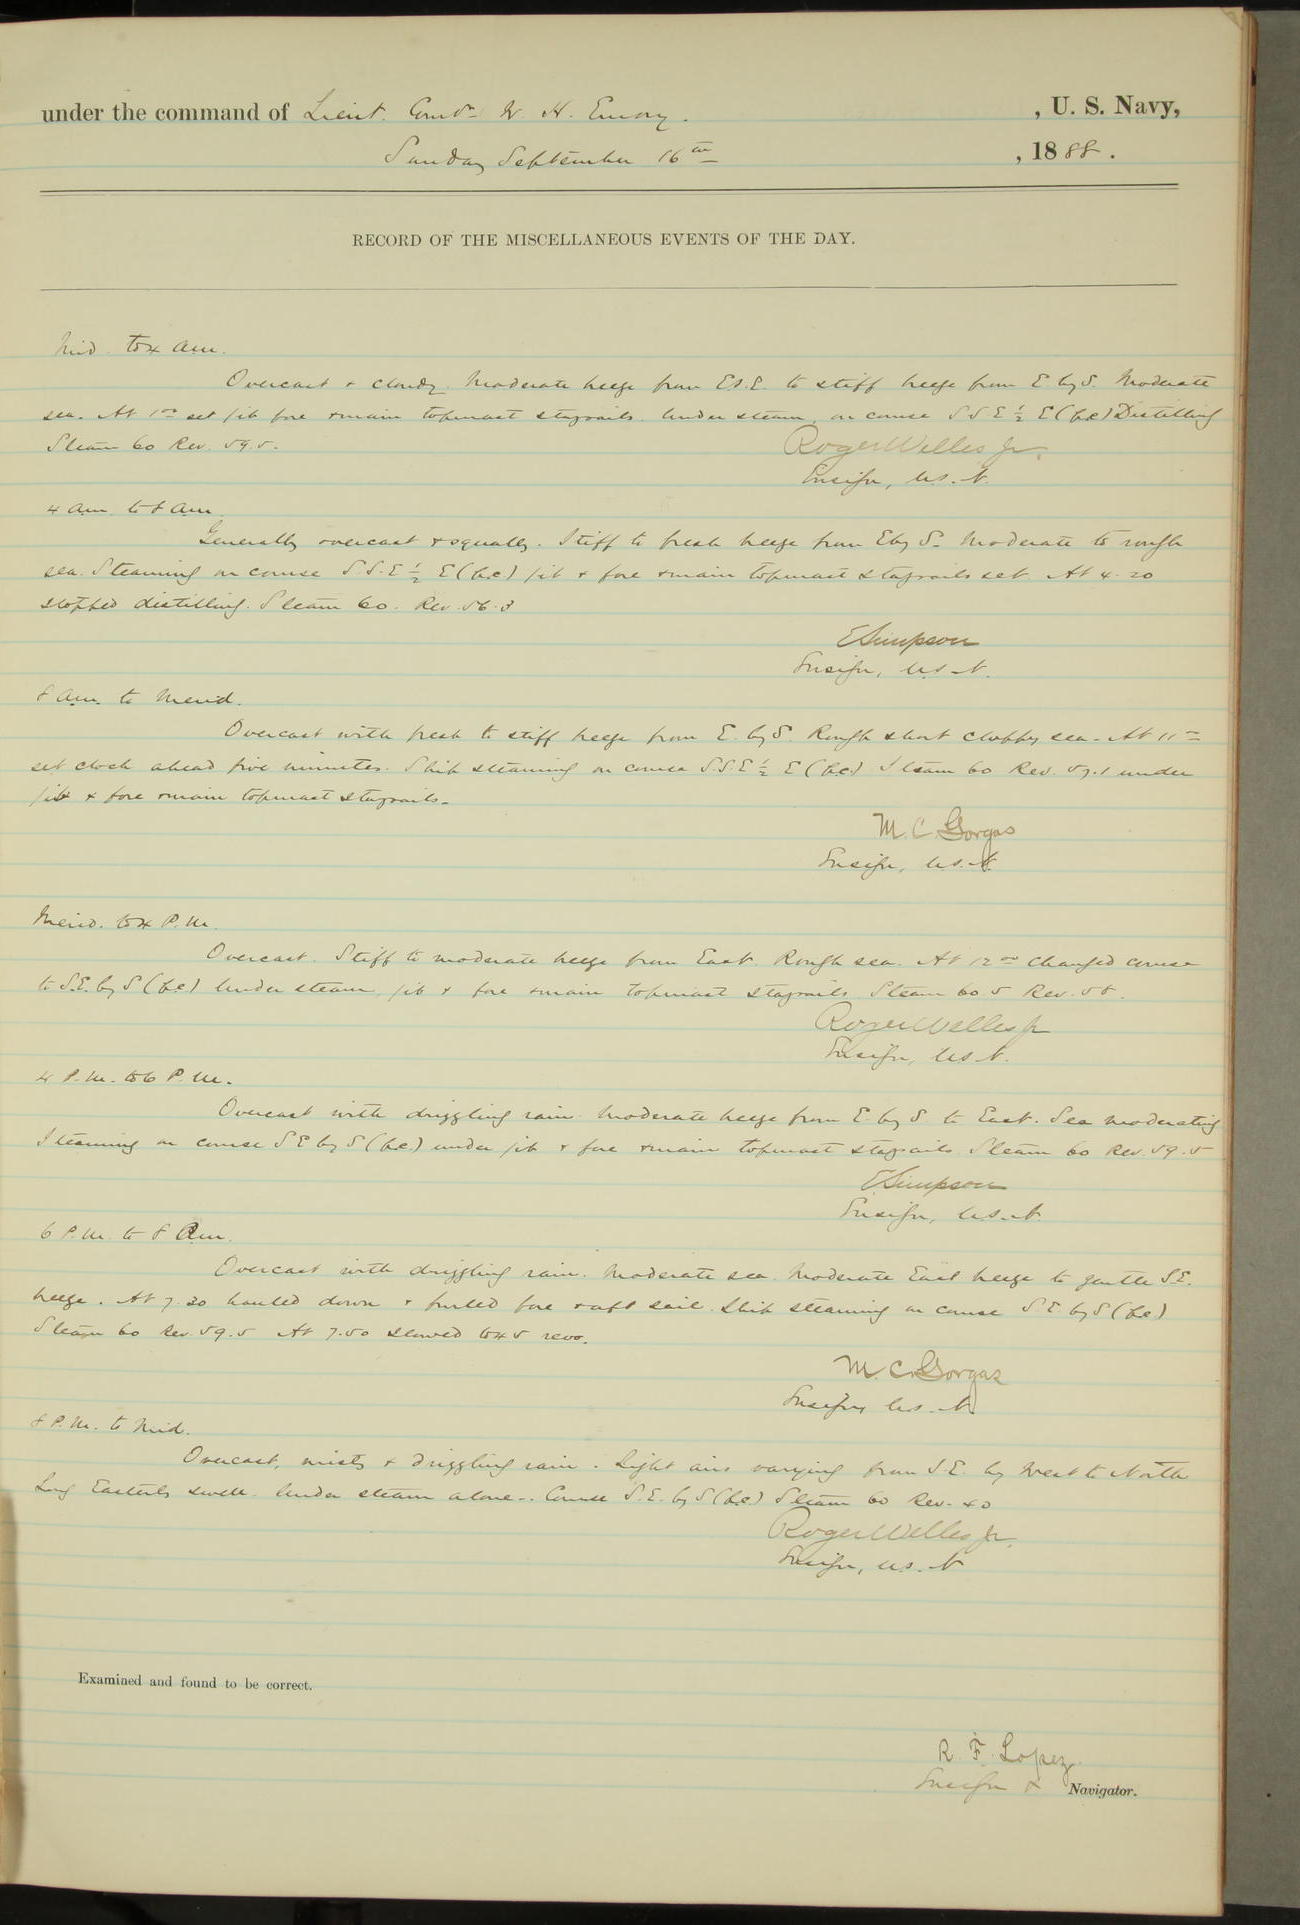 under the command of Lieut. Comdr W. H. Emory. , U. S. Navy,
Sunday September 16th , 1888.
RECORD OF THE MISCELLANEOUS EVENTS OF THE DAY.
Mid. to 4 a.m.
Overcast & cloudy. Moderate breeze from E.S.E. to stiff breeze from E by S. Moderate
sea. At 1.00 set jib fore & main topmast staysails. Under steam on course S S E ½ E (p.c.) Distilling
Steam 60 Rev. 59.5.
Roger Welles Jr.
Ensign, U.S.N.
4 a.m. to 8 a.m.
Generally overcast & squally. Stiff to fresh breeze from E by S. Moderate to rough
sea. Steaming on course S.S.E ½ E (p.c.) jib & fore & main topmast staysails set. At 4.20
stopped distilling. Steam 60. Rev. 56.3
E Simpson
Ensign, U.S.N.
8 a.m. to Merid.
Overcast with fresh to stiff breeze from E. by S. Rough short choppy sea. At 11.00
set clock ahead five minutes. Ship steaming on course S.S.E ½ E (p.c.) Steam 60 Rev. 57.1 under
jib & fore & main topmast staysails.
M. C. Gorgas
Ensign, U.S.N.
Merid. to 4 P.M.
Overcast. Stiff to moderate breeze from East. Rough sea. At 12.00 changed course
to S.E. by S (p.c.) Under steam, jib & fore & main topmast staysails. Steam 60.5 Rev. 58.
Roger Welles Jr
Ensign, U.S.N.
4 P.M. to 6 P.M.
Overcast with drizzling rain. Moderate breeze from E. by S. to East. Sea moderating
Steaming on course S E by S (p.c.) under jib & fore & main topmast staysails. Steam 60 Rev. 59.5
E. Simpson
Ensign, U.S.N.
6 P.M. to 8 P.m.
Overcast with drizzling rain. Moderate sea. Moderate East breeze to gentle S.E.
breeze. At 7.30 hauled down & furled fore & aft sail. Ship steaming on course S.E. by S (p.c.)
Steam 60 Rev. 59.5 At 7.50 slowed to 45 revs.
M. C. Gorgas
Ensign U.S.N.
8 P.M. to Mid.
Overcast, misty & drizzling rain. Light airs varying from S.E. by West to North
Long Easterly swell. Under steam alone. Course S.E. by S (p.c.) Steam 60 Rev. 40
Roger Welles Jr.
Ensign, U.S.N
Examined and found to be correct.
R. F. Lopez
Ensign & Navigator.